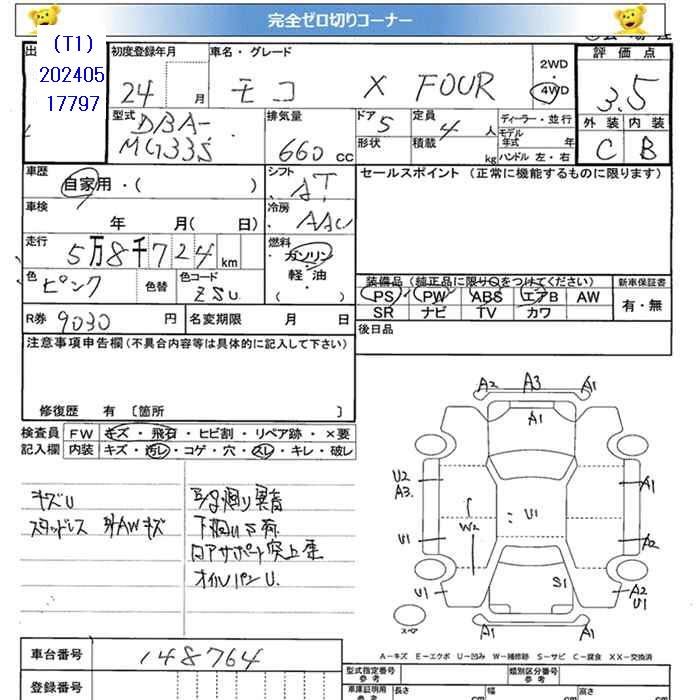 完全ゼロ切りコーナー
(T1)
202405
17797
初度登録年月
24 月
車名・グレード
モコ X FOUR
2WD
4WD
評価点
3.5
外装 内装
C B
型式
DBA-
MG33S
排気量
660 cc
ドア 5
形状
定員 4 人
積載 kg
ディーラー・並行
モデル年式 年
ハンドル 左・右
車歴
自家用・( )
シフト
AT
冷房
AAC
車検
年 月( 日)
走行
5万8千724 km
燃料
ガソリン・軽油
( )
色
ピンク
色替
色コード
ZSU
R券 9030 円
名変期限 月 日
セールスポイント (正常に機能するものに限ります)
装備品(純正品に限り○をつけてください)
PS PW ABS エアB AW
SR ナビ TV カワ
新車保証書
有・無
後日品
注意事項申告欄(不具合内容等は具体的に記入して下さい)
修復歴 有 〔箇所 〕
検査員記入欄
FW キズ・飛石・ヒビ割・リペア跡・×要
内装 キズ・汚レ・コゲ・穴・スレ・キレ・破レ
キズU
スタッドレス 外AWキズ
下廻りサビ有
コアサポート突上歪
オイルパンU.
A2 A3 A1
A1
U2
A3.
A1
W2
U1
U1
A2
S1
U1
A2
U1
A1 A1
スペア
A−キズ E−エクボ U−凹み W−補修跡 S−サビ C−腐食 XX−交換済
車台番号 148764
登録番号
型式指定番号
参考
類別区分番号
参考
車庫証明用
参考
長さ cm
幅 cm
高さ cm